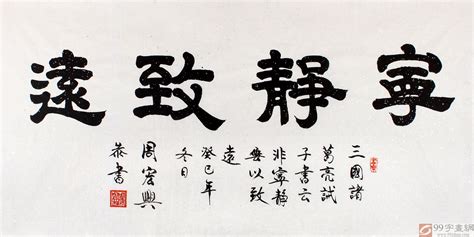 寧靜致遠
三國諸
葛亮誡
子書云
非寧靜
無以致
遠
癸巳年
冬日
周宏興
恭書
99字畫網